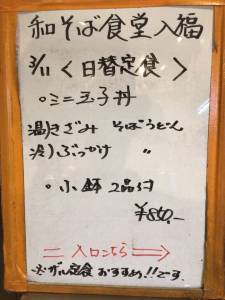 和そば食堂入福
3/11 < 日替定食 >
○ミニ玉子丼
温)きざみ そばうどん
冷)ぶっかけ 〃
○小鉢 2品付
¥850.-
= 入口こちら ⇒
定食 おすすめ!!です.